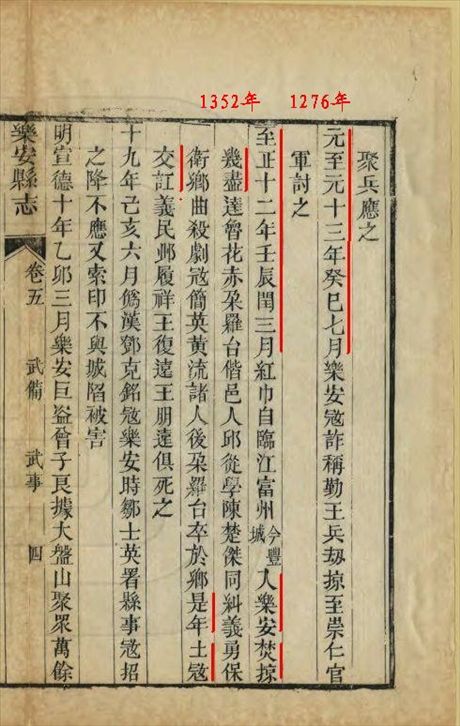 1352年 1276年
聚兵應之
元至元十三年癸巳七月樂安寇詐稱勤王兵刼掠至崇仁官
軍討之
至正十二年壬辰閏三月紅巾自臨江富州今豐城入樂安焚掠
幾盡達魯花赤朶羅台偕邑人邱從學陳楚傑同糾義勇保
衛鄉曲殺劇寇簡英黃流諸人後朶羅台卒於鄉是年土寇
交訌義民鄭履祥王復遠王朋達俱死之
十九年己亥六月僞漢鄧克銘寇樂安時鄒士英署縣事寇招
之降不應又索印不與城陷被害
明宣德十年乙卯三月樂安巨盜曾子良據大盤山聚眾萬餘
樂安縣志 卷五 武備 武事 四